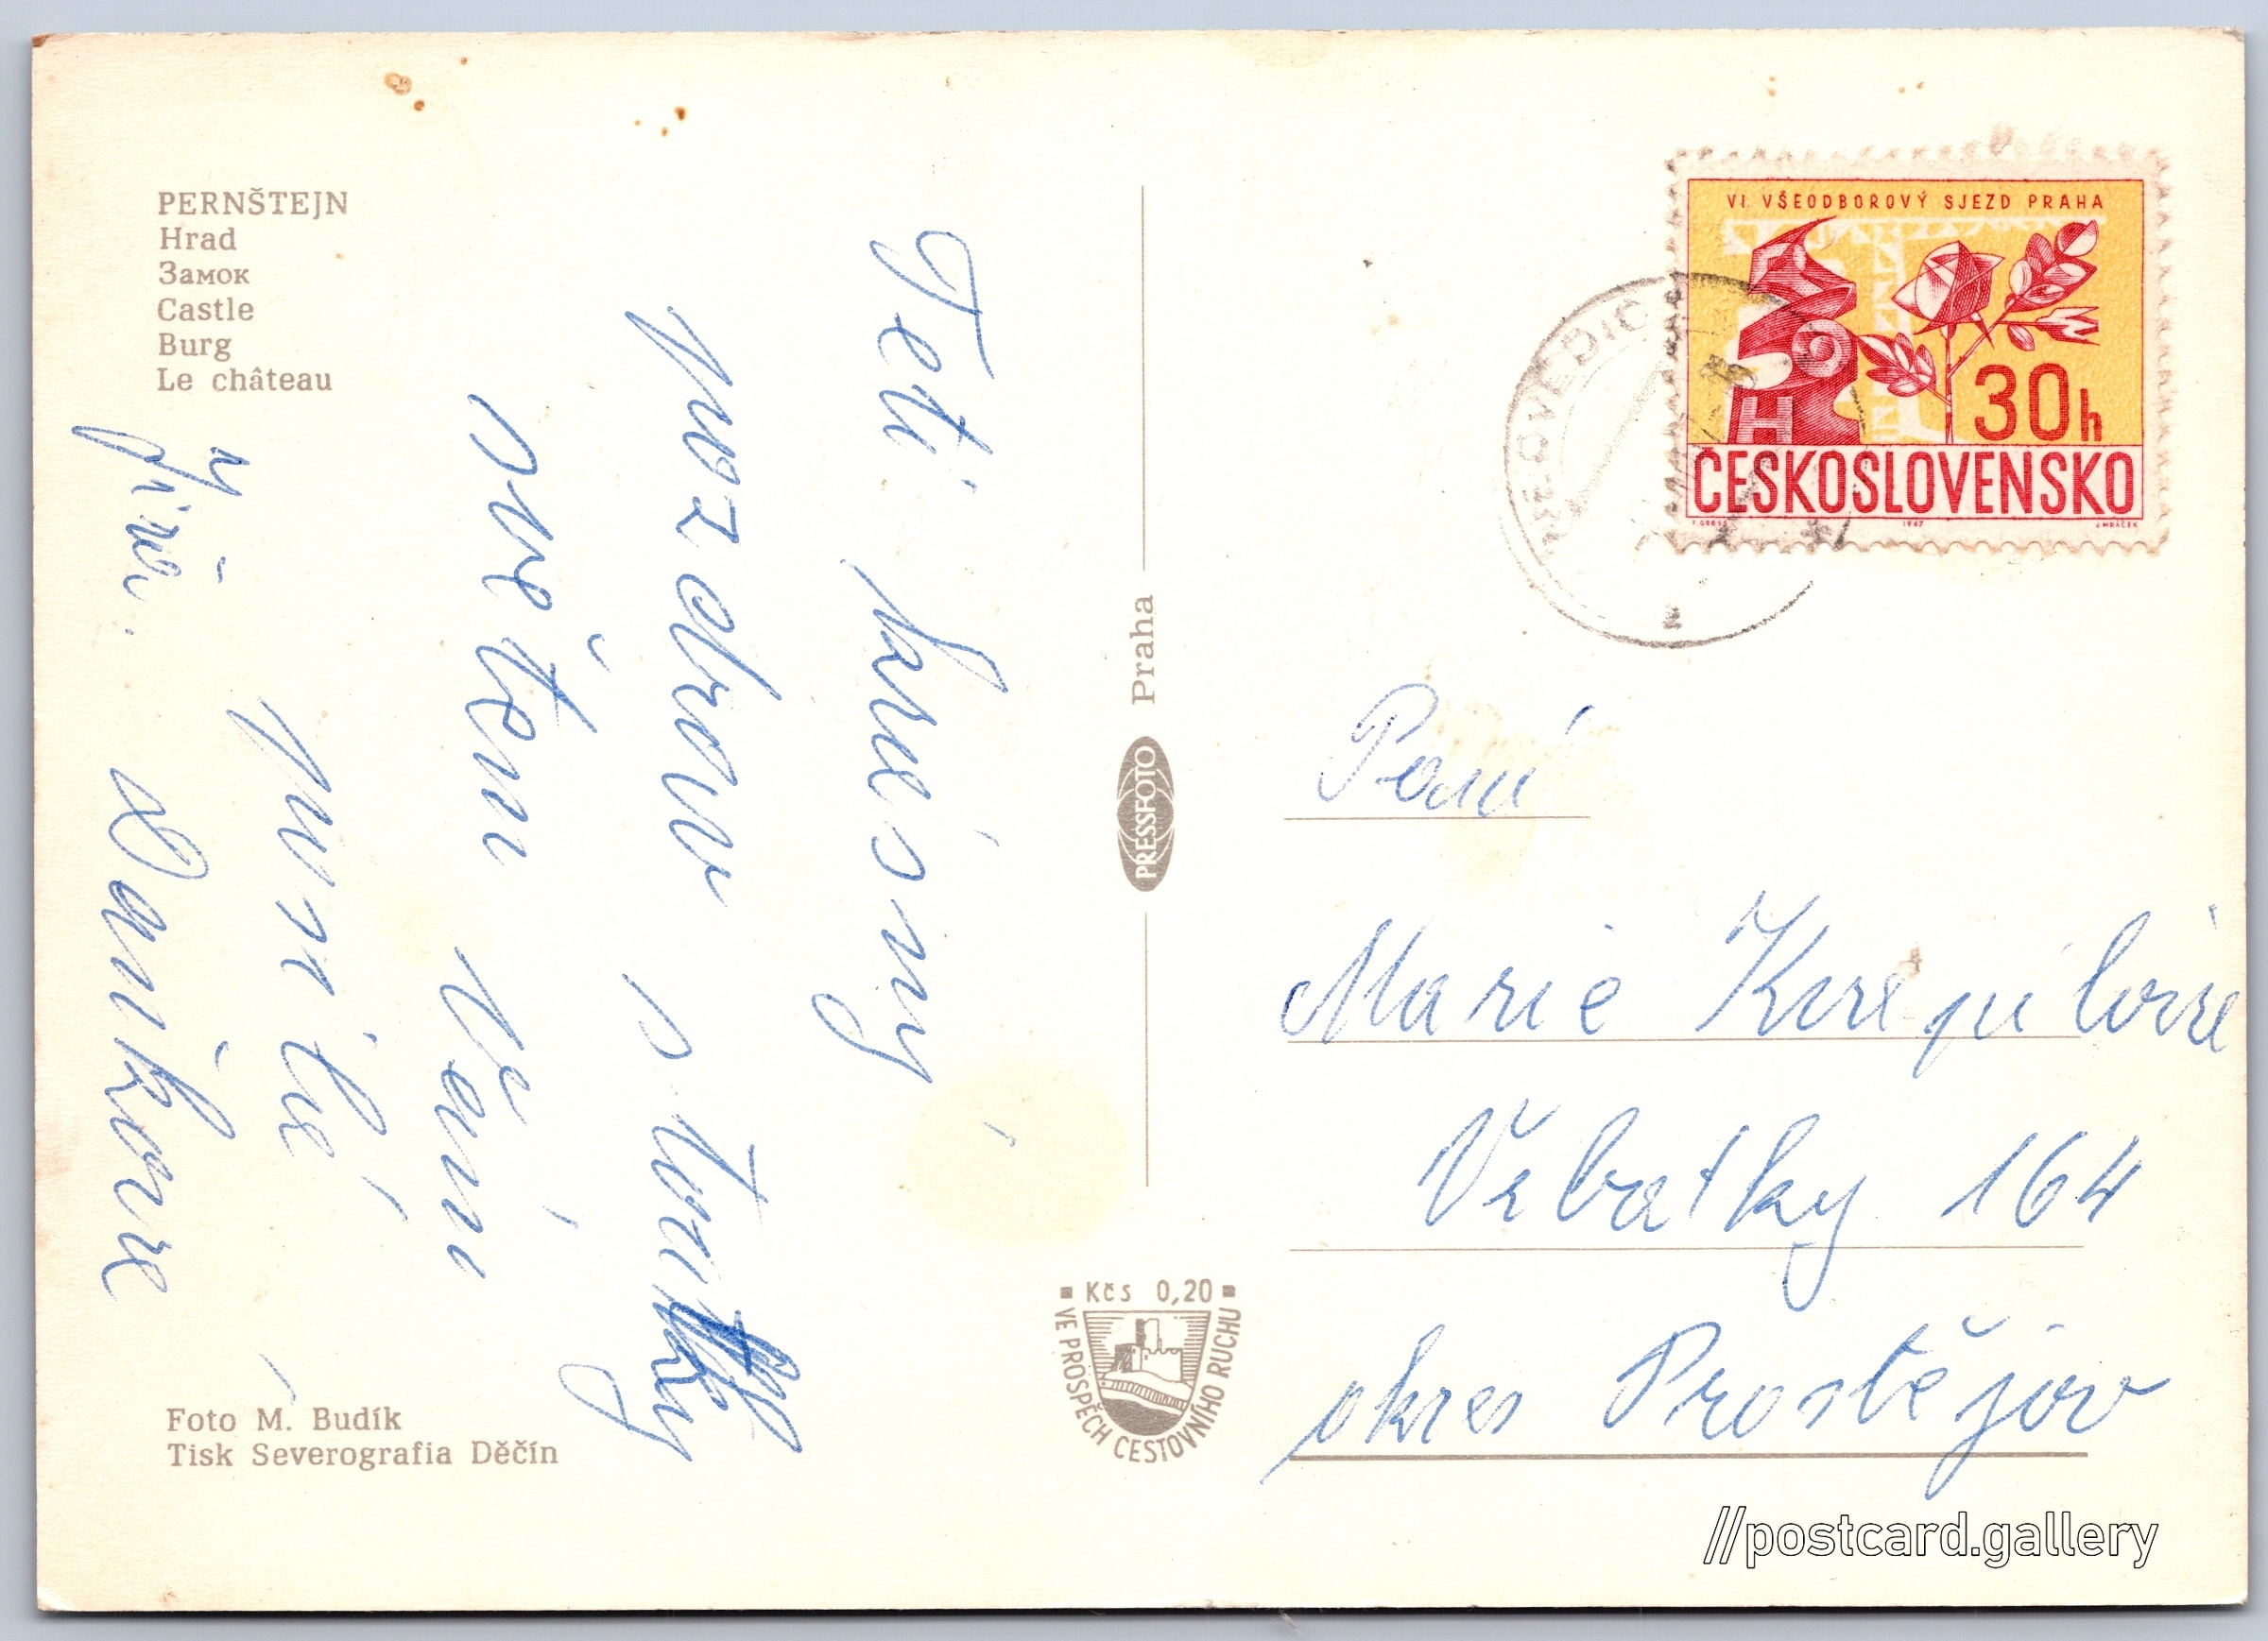 PERNŠTEJN
Hrad
Замок
Castle
Burg
Le château
Teti krásný
pozdrav s toulky
světem Vám
posílá
Jiři. Daňkove
Foto M. Budík
Tisk Severografia Děčín
PRESSFOTO Praha
Kčs 0,20
VE PROSPĚCH CESTOVNÍHO RUCHU
VI. VŠEODBOROVÝ SJEZD PRAHA
30h
ČESKOSLOVENSKO
1967
Paní
Marie
Vrbatky 164
okres Prostějov
//postcard.gallery